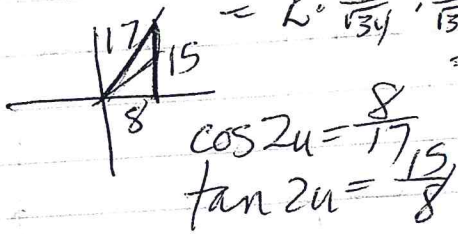 = 2 · /√34 · /√3
=
17
15
8
cos2u = 8/17
tan 2u = 15/8